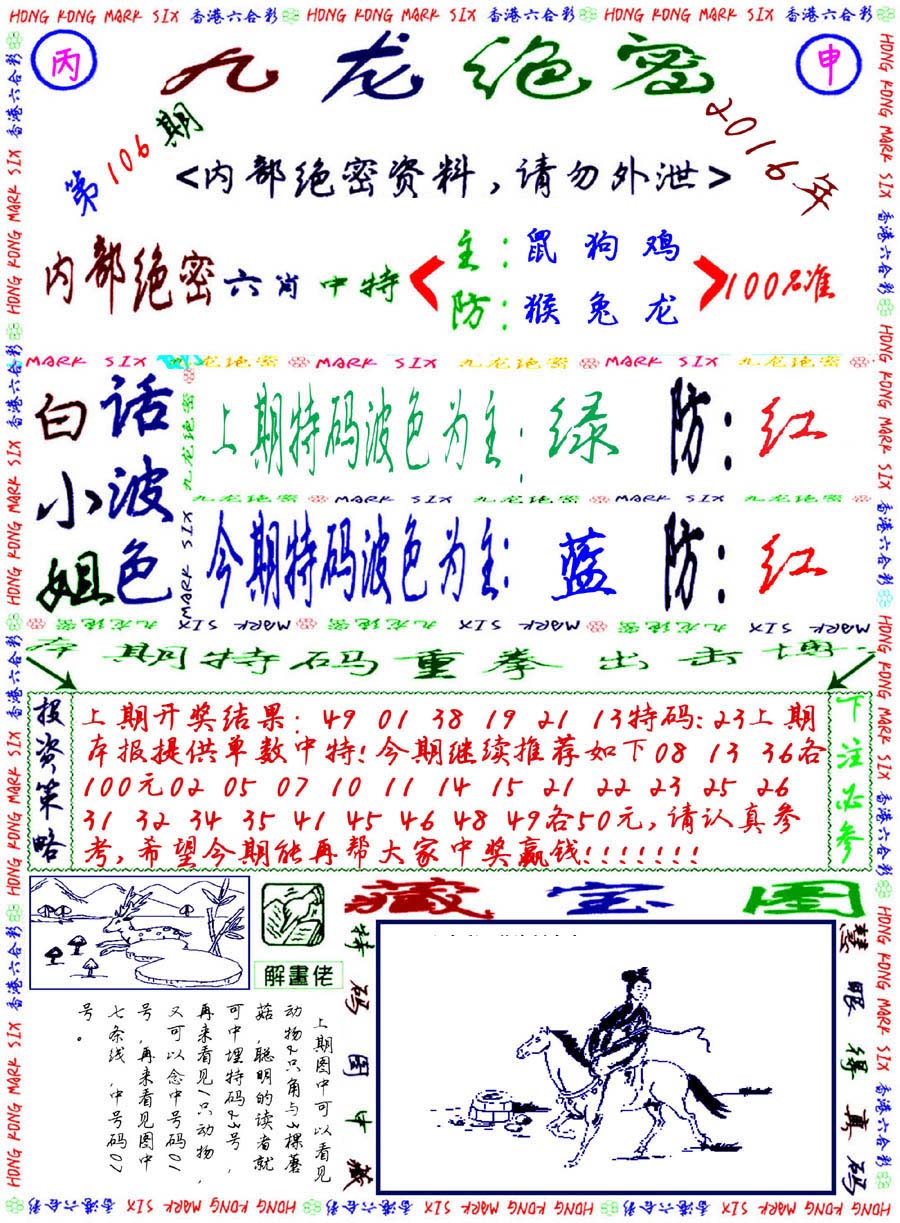 HONG KONG MARK SIX 香港六合彩 HONG KONG MARK SIX 香港六合彩 HONG KONG MARK SIX 香港六合彩
丙
九龙绝密
申
第106期
2016年
<内部绝密资料,请勿外泄>
内部绝密六肖中特
主:鼠狗鸡
防:猴兔龙
100%准
MARK SIX 九龙绝密 MARK SIX 九龙绝密 MARK SIX 九龙绝密
白小姐
话波色
上期特码波色为主:绿 防:红
九龙绝密 MARK SIX 九龙绝密 MARK SIX 九龙绝密
今期特码波色为主:蓝 防:红
九龙绝密 MARK SIX 九龙绝密 MARK SIX 九龙绝密 MARK SIX
本期特码重拳出击博
投资策略
上期开奖结果: 49 01 38 19 21 13特码:23上期
本报提供单数中特!今期继续推荐如下08 13 36各
100元02 05 07 10 11 14 15 21 22 23 25 26
31 32 34 35 41 45 46 48 49各50元,请认真参
考,希望今期能再帮大家中奖赢钱!!!!!!!
下注必参
藏宝图
解畫佬
特码图中藏
慧眼得真码
上期图中可以看见
动物2只角与3棵蘑
菇,聪明的读者就
可中埋特码23号,
再来看见1只动物,
又可以念中号码01
号,再来看见图中
七条线,中号码07
号。
HONG KONG MARK SIX 香港六合彩 HONG KONG MARK SIX 香港六合彩 HONG KONG MARK SIX 香港六合彩